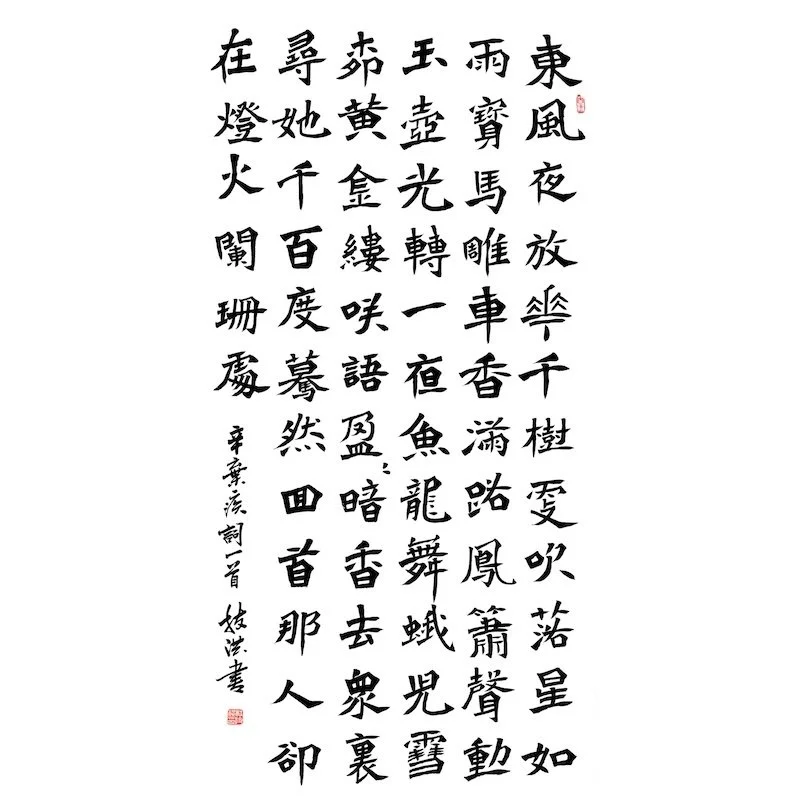 東風夜放華千樹更吹落星如
雨寶馬雕車香滿路鳳簫聲動
玉壺光轉一夜魚龍舞蛾兒雪
柳黄金縷咲語盈〻暗香去衆裏
尋她千百度驀然回首那人卻
在燈火闌珊處
辛棄疾詞一首 洪書